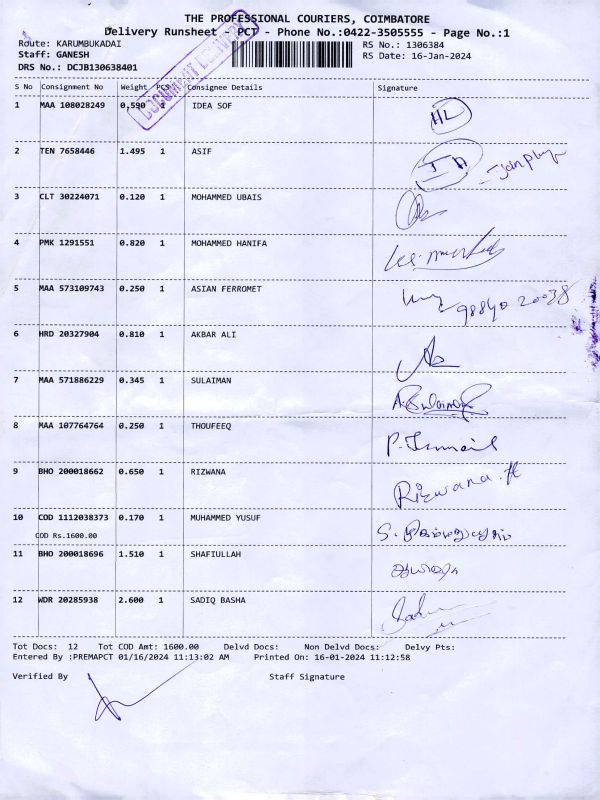 THE PROFESSIONAL COURIERS, COIMBATORE
Delivery Runsheet - PCT - Phone No.:0422-3505555 - Page No.:1
Route: KARUMBUKADAI RS No.: 1306384
Staff: GANESH RS Date: 16-Jan-2024
DRS No.: DCJB130638401
DOCUMENT DELIVERY
S No Consignment No Weight PCS Consignee Details Signature
1 MAA 108028249 0.590 1 IDEA SOF HL
2 TEN 7658446 1.495 1 ASIF
3 CLT 30224071 0.120 1 MOHAMMED UBAIS
4 PMK 1291551 0.820 1 MOHAMMED HANIFA
5 MAA 573109743 0.250 1 ASIAN FERROMET 98840 20038
6 HRD 20327904 0.810 1 AKBAR ALI
7 MAA 571886229 0.345 1 SULAIMAN A.Sulaiman
8 MAA 107764764 0.250 1 THOUFEEQ P.Ismail
9 BHO 200018662 0.650 1 RIZWANA Rizwana.H
10 COD 1112038373 0.170 1 MUHAMMED YUSUF
COD Rs.1600.00
11 BHO 200018696 1.510 1 SHAFIULLAH
12 WDR 20285938 2.600 1 SADIQ BASHA
Tot Docs: 12 Tot COD Amt: 1600.00 Delvd Docs: Non Delvd Docs: Delvy Pts:
Entered By :PREMAPCT 01/16/2024 11:13:02 AM Printed On: 16-01-2024 11:12:58
Verified By Staff Signature